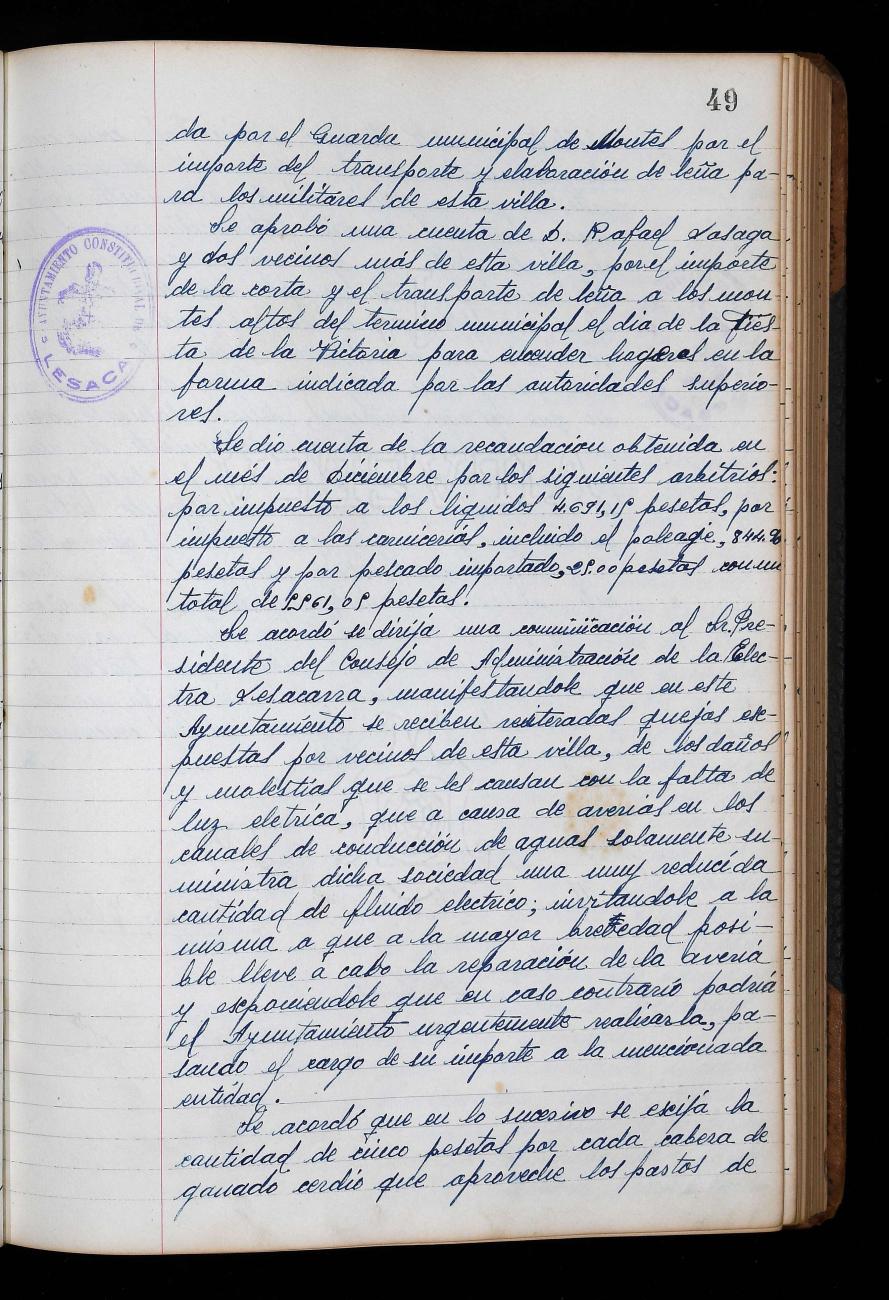 49
da por el Guarda municipal de Montes por el
importe del transporte y elaboración de leña pa-
ra los militares de esta villa.
Se aprobó una cuenta de D. Rafael Lasaga
y dos vecinos más de esta villa, por el importe
de la corta y el transporte de leña a los mon-
tes altos del termino municipal el dia de la Fies-
ta de la Victoria para encender hogeras en la
forma indicada por las autoridades superio-
res.
Se dio cuenta de la recaudacion obtenida en
el més de Diciembre por los siguientes arbitrios:
por impuesto a los liquidos 4.691,15 pesetas, por
impuetto a las carnicerias, incluido el poleage, 844.90
pesetas y por pescado importado, 25.00 pesetas con un
total de 5561,05 pesetas.
Se acordó se dirija una comunicación al Sr. Pre-
sidente del Consejo de Administración de la Elec-
tra Lesacarra, manifestandole que en este
Ayuntamiento se reciben reiteradas quejas es-
puestas por vecinos de esta villa, de los daños
y molestias que se les causan con la falta de
luz eletrica, que a causa de averias en los
canales de conducción de aguas solamente su-
ministra dicha sociedad una muy reducida
cantidad de fluido electrico; invitandole a la
misma a que a la mayor brevedad posi-
ble lleve a cabo la reparación de la averia
y esponiendole que en caso contrario podria
el Ayuntamiento urgentemente realizarla, pa-
sando el cargo de su importe a la mencionada
entidad.
Se acordó que en lo sucesivo se escija la
cantidad de cinco pesetas por cada cabeza de
ganado cerdio que aproveche los pastos de
AYUNTAMIENTO CONSTITUCIONAL DE
LESACA